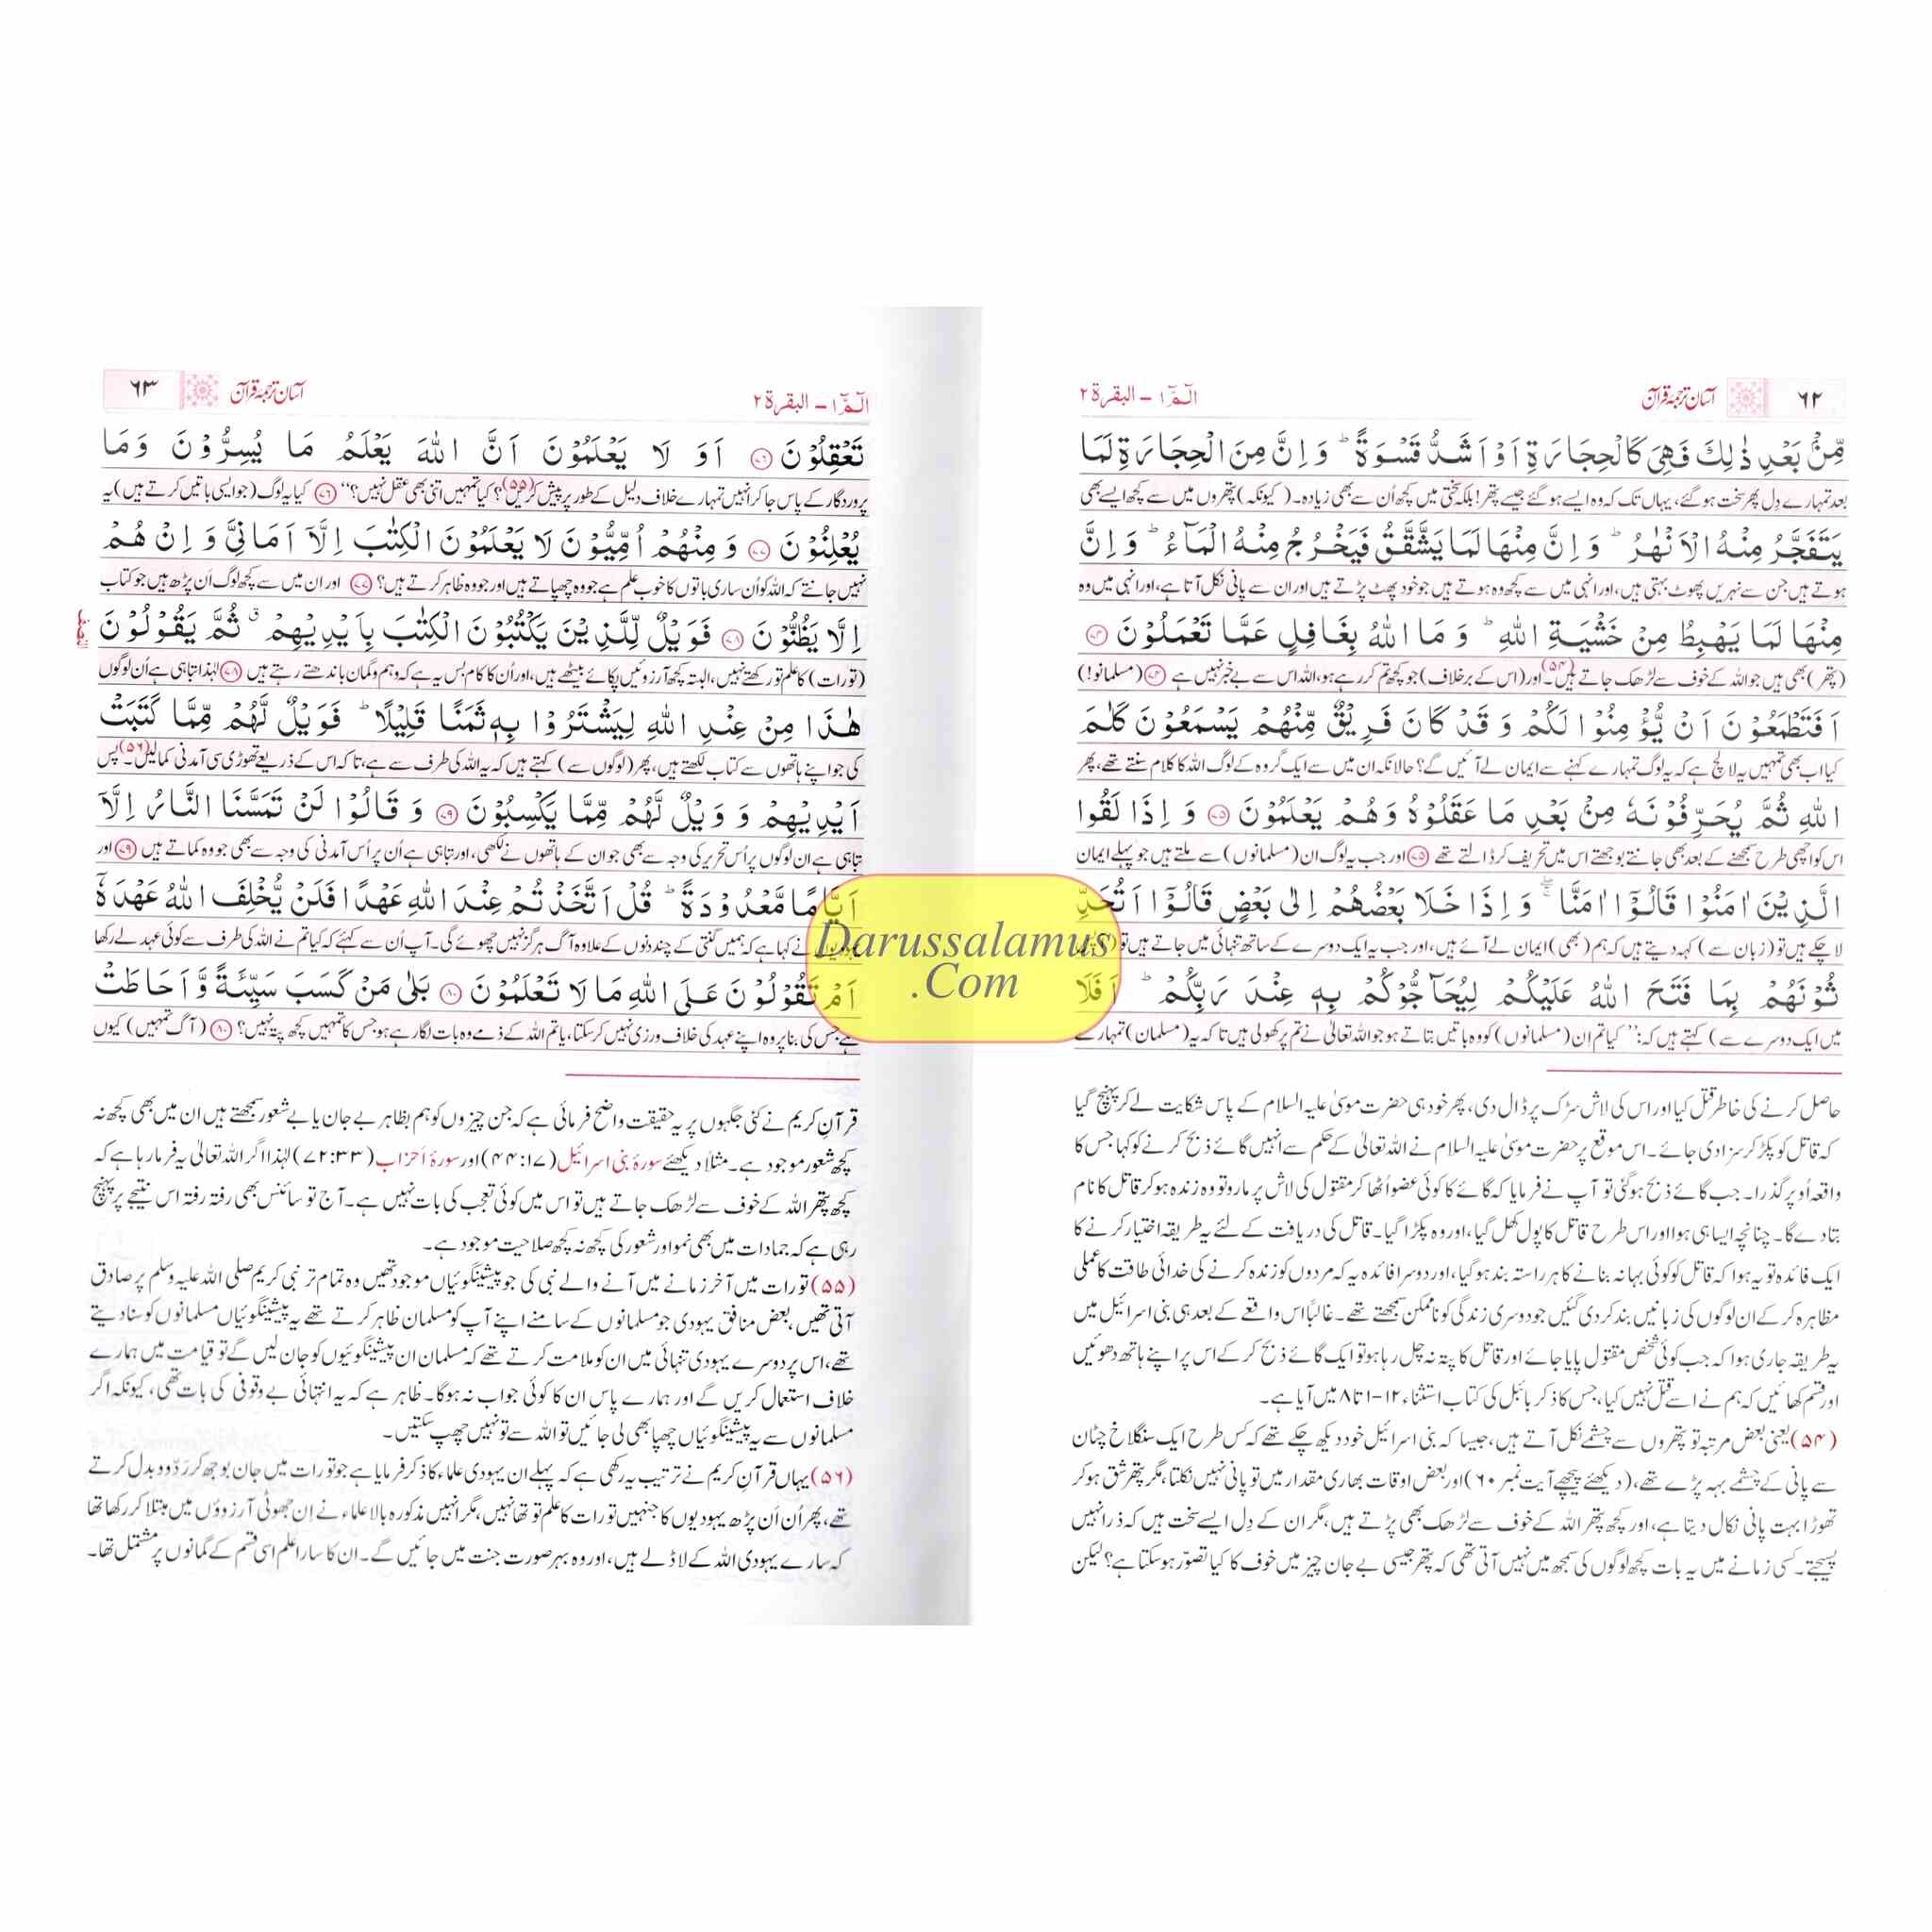 ۶۲
آسان ترجمۂ قرآن
الٓمّٓ ۱ – البقرۃ ۲
مِّنْۢ بَعْدِ ذٰلِكَ فَهِىَ كَالْحِجَارَةِ اَوْ اَشَدُّ قَسْوَةً ؕ وَ اِنَّ مِنَ الْحِجَارَةِ لَمَا
بعد تمہارے دِل پھر سخت ہوگئے، یہاں تک کہ وہ ایسے ہوگئے جیسے پتھر! بلکہ سختی میں کچھ اُن سے بھی زیادہ۔ (کیونکہ) پتھروں میں سے کچھ ایسے بھی
يَتَفَجَّرُ مِنْهُ الْاَنْهٰرُ ؕ وَ اِنَّ مِنْهَا لَمَا يَشَّقَّقُ فَيَخْرُجُ مِنْهُ الْمَآءُ ؕ وَ اِنَّ
ہوتے ہیں جن سے نہریں پھوٹ بہتی ہیں، اور انہی میں سے کچھ وہ ہوتے ہیں جو خود پھٹ پڑتے ہیں اور ان سے پانی نکل آتا ہے، اور انہی میں وہ
مِنْهَا لَمَا يَهْبِطُ مِنْ خَشْيَةِ اللهِ ؕ وَ مَا اللهُ بِغَافِلٍ عَمَّا تَعْمَلُوْنَ ﴿۷۴﴾
(پتھر) بھی ہیں جو اللہ کے خوف سے لڑھک جاتے ہیں۔(۵۴) اور (اس کے برخلاف) جو کچھ تم کر رہے ہو، اللہ اس سے بے خبر نہیں ہے ﴿۷۴﴾ (مسلمانو!)
اَفَتَطْمَعُوْنَ اَنْ يُّؤْمِنُوْا لَكُمْ وَ قَدْ كَانَ فَرِيْقٌ مِّنْهُمْ يَسْمَعُوْنَ كَلٰمَ
کیا اب بھی تمہیں یہ لالچ ہے کہ یہ لوگ تمہارے کہنے سے ایمان لے آئیں گے؟ حالانکہ ان میں سے ایک گروہ کے لوگ اللہ کا کلام سنتے تھے، پھر
اللهِ ثُمَّ يُحَرِّفُوْنَهٗ مِنْۢ بَعْدِ مَا عَقَلُوْهُ وَهُمْ يَعْلَمُوْنَ ﴿۷۵﴾ وَ اِذَا لَقُوا
اس کو اچھی طرح سمجھنے کے بعد بھی جانتے بوجھتے اس میں تحریف کر ڈالتے تھے ﴿۷۵﴾ اور جب یہ لوگ ان (مسلمانوں) سے ملتے ہیں جو پہلے ایمان
الَّذِيْنَ اٰمَنُوْا قَالُوْۤا اٰمَنَّا ۚۖ وَ اِذَا خَلَا بَعْضُهُمْ اِلٰى بَعْضٍ قَالُوْۤا اَتُحَدِّ
لا چکے ہیں تو (زبان سے) کہہ دیتے ہیں کہ ہم (بھی) ایمان لے آئے ہیں، اور جب یہ ایک دوسرے کے ساتھ تنہائی میں جاتے ہیں تو
ثُوْنَهُمْ بِمَا فَتَحَ اللهُ عَلَيْكُمْ لِيُحَآجُّوْكُمْ بِهٖ عِنْدَ رَبِّكُمْ ؕ اَفَلَا
میں ایک دوسرے سے) کہتے ہیں کہ: ”کیا تم اِن (مسلمانوں) کو وہ باتیں بتاتے ہو جو اللہ تعالیٰ نے تم پر کھولی ہیں تاکہ یہ (مسلمان) تمہارے
حاصل کرنے کی خاطر قتل کیا اور اس کی لاش سڑک پر ڈال دی، پھر خود ہی حضرت موسیٰ علیہ السلام کے پاس شکایت لے کر پہنچ گیا
کہ قاتل کو پکڑ کر سزا دی جائے۔ اس موقع پر حضرت موسیٰ علیہ السلام نے اللہ تعالیٰ کے حکم سے انہیں گائے ذبح کرنے کو کہا جس کا
واقعہ اُوپر گذرا۔ جب گائے ذبح ہوگئی تو آپ نے فرمایا کہ گائے کا کوئی عضو اُٹھا کر مقتول کی لاش پر مارو تو وہ زندہ ہو کر قاتل کا نام
بتا دے گا۔ چنانچہ ایسا ہی ہوا اور اس طرح قاتل کا پول کھل گیا، اور وہ پکڑا گیا۔ قاتل کی دریافت کے لئے یہ طریقہ اختیار کرنے کا
ایک فائدہ تو یہ ہوا کہ قاتل کو کوئی بہانہ بنانے کا ہر راستہ بند ہوگیا، اور دوسرا فائدہ یہ کہ مردوں کو زندہ کرنے کی خدائی طاقت کا عملی
مظاہرہ کرکے ان لوگوں کی زبانیں بند کردی گئیں جو دوسری زندگی کو ناممکن سمجھتے تھے۔ غالباً اس واقعے کے بعد ہی بنی اسرائیل میں
یہ طریقہ جاری ہوا کہ جب کوئی شخص مقتول پایا جائے اور قاتل کا پتہ نہ چل رہا ہو تو ایک گائے ذبح کرکے اس پر اپنے ہاتھ دھوئیں
اور قسم کھائیں کہ ہم نے اسے قتل نہیں کیا، جس کا ذکر بائبل کی کتاب استثناء ۱۲-۱ تا ۸ میں آیا ہے۔
(۵۴) یعنی بعض مرتبہ تو پتھروں سے چشمے نکل آتے ہیں، جیسا کہ بنی اسرائیل خود دیکھ چکے تھے کہ کس طرح ایک سنگلاخ چٹان
سے پانی کے چشمے بہہ پڑے تھے، (دیکھئے پیچھے آیت نمبر ۶۰) اور بعض اوقات بھاری مقدار میں تو پانی نہیں نکلتا، مگر پتھر شق ہوکر
تھوڑا بہت پانی نکال دیتا ہے، اور کچھ پتھر اللہ کے خوف سے لڑھک بھی پڑتے ہیں، مگر ان کے دِل ایسے سخت ہیں کہ ذرا نہیں
پسیجتے۔ کسی زمانے میں یہ بات کچھ لوگوں کی سمجھ میں نہیں آتی تھی کہ پتھر جیسی بے جان چیز میں خوف کا کیا تصوّر ہوسکتا ہے؟ لیکن
الٓمّٓ ۱ – البقرۃ ۲
آسان ترجمۂ قرآن
۶۳
تَعْقِلُوْنَ ﴿۷۶﴾ اَوَ لَا يَعْلَمُوْنَ اَنَّ اللهَ يَعْلَمُ مَا يُسِرُّوْنَ وَمَا
پروردگار کے پاس جا کر انہیں تمہارے خلاف دلیل کے طور پر پیش کریں(۵۵)؟ کیا تمہیں اتنی بھی عقل نہیں؟“ ﴿۷۶﴾ کیا یہ لوگ (جو ایسی باتیں کرتے ہیں) یہ
يُعْلِنُوْنَ ﴿۷۷﴾ وَ مِنْهُمْ اُمِّيُّوْنَ لَا يَعْلَمُوْنَ الْكِتٰبَ اِلَّاۤ اَمَانِىَّ وَ اِنْ هُمْ
نہیں جانتے کہ اللہ کو اُن ساری باتوں کا خوب علم ہے جو وہ چھپاتے ہیں اور جو وہ ظاہر کرتے ہیں؟ ﴿۷۷﴾ اور ان میں سے کچھ لوگ اَن پڑھ ہیں جو کتاب
النصف
اِلَّا يَظُنُّوْنَ ﴿۷۸﴾ فَوَيْلٌ لِّلَّذِيْنَ يَكْتُبُوْنَ الْكِتٰبَ بِاَيْدِيْهِمْ ۗ ثُمَّ يَقُوْلُوْنَ
(تورات) کا علم تو رکھتے نہیں، البتہ کچھ آرزوئیں پکائے بیٹھے ہیں، اور اُن کا کام بس یہ ہے کہ وہم و گمان باندھتے رہتے ہیں ﴿۷۸﴾ لہٰذا تباہی ہے اُن لوگوں
هٰذَا مِنْ عِنْدِ اللهِ لِيَشْتَرُوْا بِهٖ ثَمَنًا قَلِيْلًا ؕ فَوَيْلٌ لَّهُمْ مِّمَّا كَتَبَتْ
کی جو اپنے ہاتھوں سے کتاب لکھتے ہیں، پھر (لوگوں سے) کہتے ہیں کہ یہ اللہ کی طرف سے ہے، تاکہ اس کے ذریعے تھوڑی سی آمدنی کما لیں۔(۵۶) پس
اَيْدِيْهِمْ وَ وَيْلٌ لَّهُمْ مِّمَّا يَكْسِبُوْنَ ﴿۷۹﴾ وَ قَالُوْا لَنْ تَمَسَّنَا النَّارُ اِلَّاۤ
تباہی ہے ان لوگوں پر اُس تحریر کی وجہ سے بھی جو ان کے ہاتھوں نے لکھی، اور تباہی ہے اُن پر اُس آمدنی کی وجہ سے بھی جو وہ کماتے ہیں ﴿۷۹﴾ اور
اَيَّامًا مَّعْدُوْدَةً ؕ قُلْ اَتَّخَذْتُمْ عِنْدَ اللهِ عَهْدًا فَلَنْ يُّخْلِفَ اللهُ عَهْدَهٗۤ
نے کہا ہے کہ ہمیں گنتی کے چند دنوں کے علاوہ آگ ہرگز نہیں چھوئے گی۔ آپ اُن سے کہئے کہ کیا تم نے اللہ کی طرف سے کوئی عہد لے رکھا
اَمْ تَقُوْلُوْنَ عَلَى اللهِ مَا لَا تَعْلَمُوْنَ ﴿۸۰﴾ بَلٰى مَنْ كَسَبَ سَيِّئَةً وَّ اَحَاطَتْ
ہے جس کی بنا پر وہ اپنے عہد کی خلاف ورزی نہیں کرسکتا، یا تم اللہ کے ذمے وہ بات لگا رہے ہو جس کا تمہیں کچھ پتہ نہیں؟ ﴿۸۰﴾ (آگ تمہیں) کیوں
قرآنِ کریم نے کئی جگہوں پر یہ حقیقت واضح فرمائی ہے کہ جن چیزوں کو ہم بظاہر بے جان یا بے شعور سمجھتے ہیں ان میں بھی کچھ نہ
کچھ شعور موجود ہے۔ مثلاً دیکھئے سورۂ بنی اسرائیل (۴۴:۱۷) اور سورۂ اَحزاب (۷۲:۳۳) لہٰذا اگر اللہ تعالیٰ یہ فرما رہا ہے کہ
کچھ پتھر اللہ کے خوف سے لڑھک جاتے ہیں تو اس میں کوئی تعجب کی بات نہیں ہے۔ آج تو سائنس بھی رفتہ رفتہ اس نتیجے پر پہنچ
رہی ہے کہ جمادات میں بھی نمو اور شعور کی کچھ نہ کچھ صلاحیت موجود ہے۔
(۵۵) تورات میں آخر زمانے میں آنے والے نبی کی جو پیشینگوئیاں موجود تھیں وہ تمام تر نبی کریم صلی اللہ علیہ وسلم پر صادق
آتی تھیں، بعض منافق یہودی جو مسلمانوں کے سامنے اپنے آپ کو مسلمان ظاہر کرتے تھے یہ پیشینگوئیاں مسلمانوں کو سنا دیتے
تھے، اس پر دوسرے یہودی تنہائی میں ان کو ملامت کرتے تھے کہ مسلمان ان پیشینگوئیوں کو جان لیں گے تو قیامت میں ہمارے
خلاف استعمال کریں گے اور ہمارے پاس ان کا کوئی جواب نہ ہوگا۔ ظاہر ہے کہ یہ انتہائی بے وقوفی کی بات تھی، کیونکہ اگر
مسلمانوں سے یہ پیشینگوئیاں چھپا بھی لی جائیں تو اللہ سے تو نہیں چھپ سکتیں۔
(۵۶) یہاں قرآنِ کریم نے ترتیب یہ رکھی ہے کہ پہلے ان یہودی علماء کا ذکر فرمایا ہے جو تورات میں جان بوجھ کر ردّ و بدل کرتے
تھے، پھر اُن اَن پڑھ یہودیوں کا جنہیں تورات کا علم تو تھا نہیں، مگر انہیں مذکورہ بالا علماء نے اِن جھوٹی آرزوؤں میں مبتلا کر رکھا تھا
کہ سارے یہودی اللہ کے لاڈلے ہیں، اور وہ بہر صورت جنت میں جائیں گے۔ ان کا سارا علم اسی قسم کے گمانوں پر مشتمل تھا۔
Darussalamus
.Com